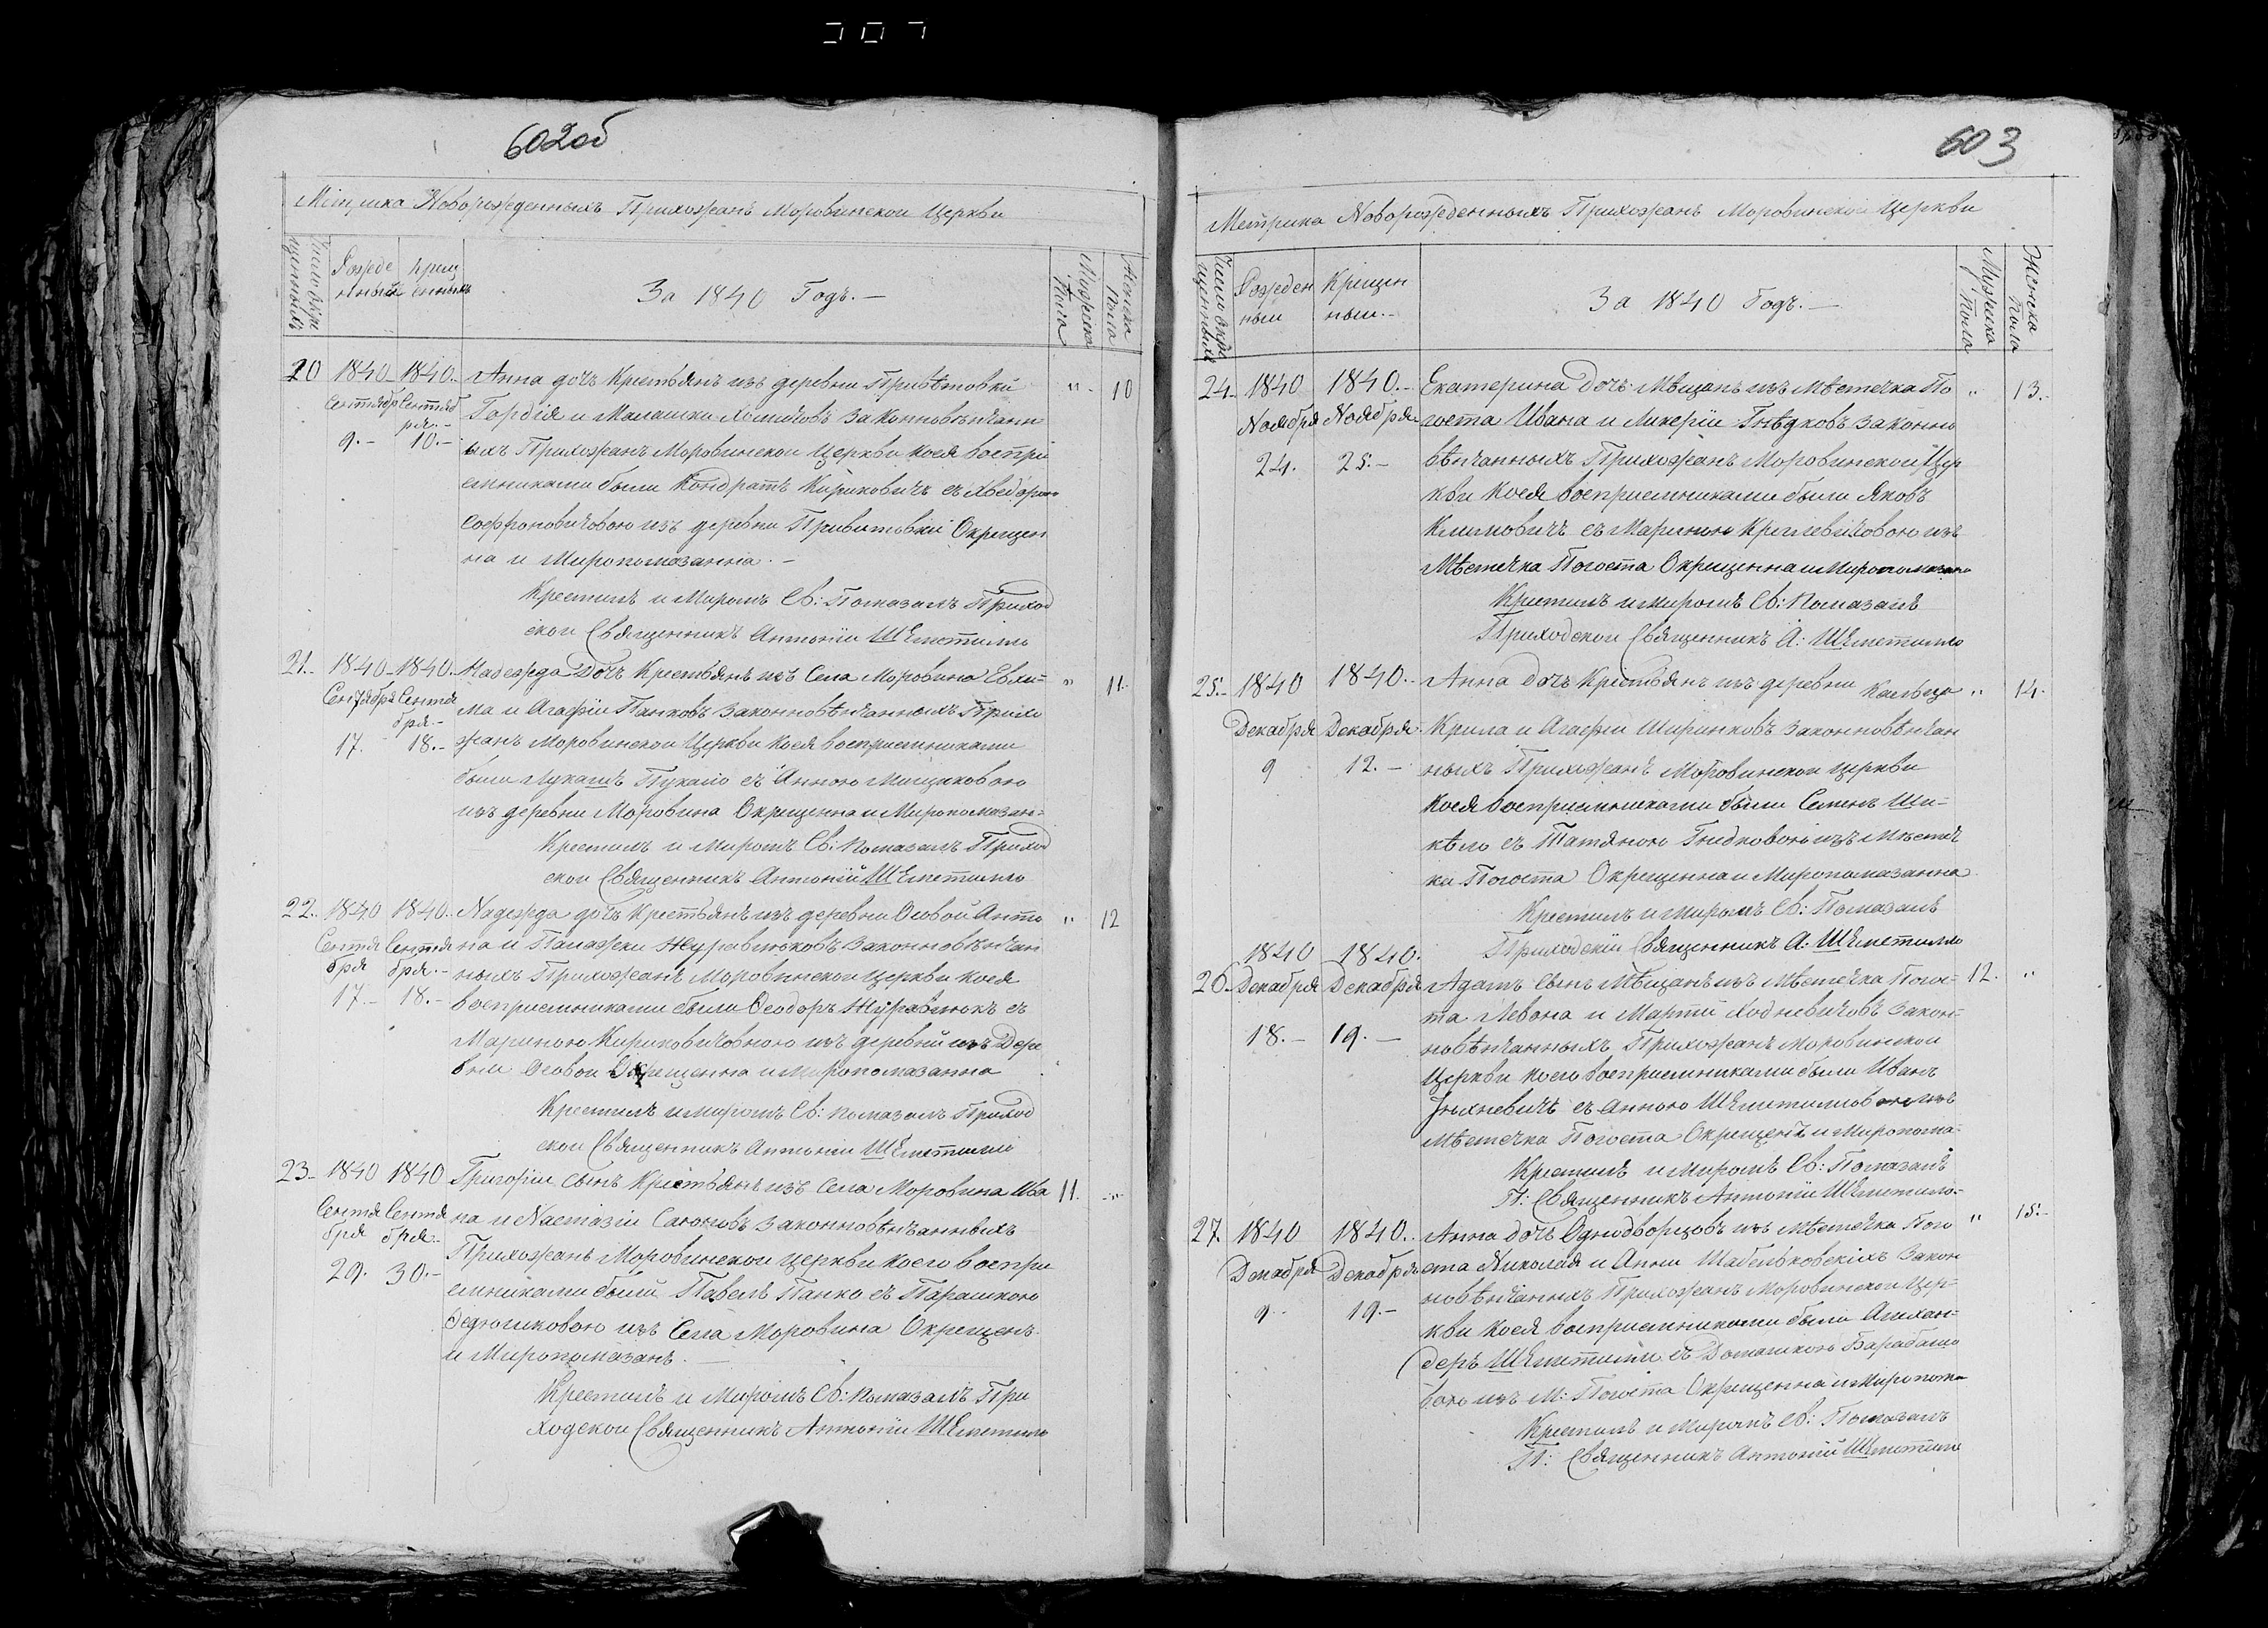 602об
Метрика Новорожденныхъ Прихожанъ Моровинской Церкви
Число окре
щенныхъ
Рожде
нный
Крещ
енныхъ
За 1840 Годъ. —
Мужеска
Пола
Женска
Пола
20 1840 1840. Анна дочь Крестьянъ изъ деревни Привѣтовки " 10
Сентябр Сентяб Гордія и Малашки Хомичовъ Законновѣнчанн=
ря.-
9.- 10.- ыхъ Прихожанъ Моровинской Церкви коея воспри
емниками были Кондратъ Кириковичъ съ Хведорою
Софроновичовою изъ деревни Привитовки Окрещен
на и Миропомазанна. —
Крестилъ и Муромъ Св: Помазалъ Приход
ской Священникъ Антоній Шеметилло
21. 1840 1840. Надежда Дочь Крестьянъ изъ Села Моровина Евхи= " 11.
Сентября Сентя
бря.- ма и Агафіи Панковъ Законновѣнчанныхъ Прихо
17. 18.- жанъ Моровинской Церкви коея восприемниками
были Лукашъ Пукало съ Анною Мищиковою
изъ деревни Моровина Окрещенна и Миропомазан=
Крестилъ и Миромъ Св: Помазалъ Приход
ской Священникъ Антоній Шеметилло
22. 1840 1840. Надежда дочь Крестьянъ изъ деревни Осовой Анто " 12
Сентя Сентя на и Палажки Журавлюковъ Законновѣнчан
бря бря.- ныхъ Прихожанъ Моровинской Церкви коея
17.- 18.- восприемниками были Ѳеодоръ Журавлюкъ съ
Мариною Кириковичовною изъ деревни изъ Дере
вни Осовой Окрещенна и Миропомазанна
Крестилъ и миромъ Св: помазалъ Приход
ской Священникъ Антоній Шеметилло
23. 1840 1840 Григорій Сынъ Крестьянъ изъ Села Моровина Ива 11. "
Сентя Сентя на и Настазіи Законновѣнчанныхъ
бря бря.- Прихожанъ Моровинской Церкви коего воспри
29. 30.- емниками были Павелъ Панко съ Парашкою
Федюшковою изъ Села Моровина Окрещенъ
и Миропомазанъ. —
Крестилъ и Миромъ Св: помазалъ При
ходской Священникъ Антоній Шеметилло
603
Метрика Новорожденныхъ Прихожанъ Моровинской Церкви
Число окре
щенныхъ
Рожден
ныи
Крещен
ныи.-
За 1840 Годъ. —
Мужеска
Пола
Женска
Пола
24. 1840 1840.- Екатерина Дочь Мѣщанъ изъ Мѣстечка По " 13.
Ноября Ноября госта Ивана и Ликеріи Гнѣдковъ законно
24. 25.- вѣнчанныхъ Прихожанъ Моровинской Цер
кви коея восприемниками были Яковъ
Климовичъ съ Мариною изъ
Мѣстечка Погоста Окрещенна и Миропомазана
Крестилъ и миромъ Св: Помазалъ
Приходской Священникъ А: Шеметилло
25. 1840 1840.- Анна дочь Крестьянъ изъ деревни " 14.
Декабря Декабря Крила и Агафіи Ширинковъ Законновѣнчан
9 12.- ныхъ Прихожанъ Моровинской церкви
коея восприемниками были Семенъ Ши=
кѣло съ Татяною Гнидковою изъ Мѣстеч
ка Погоста Окрещенна и Миропомазанна
Крестилъ и миромъ Св: Помазалъ
Приходскій Священникъ А. Шеметилло
1840 1840.
26. Декабря Декабря Адамъ Сынъ Мѣщанъ изъ Мѣстечка Погос= 12. "
18.- 19.- та Левона и Марти Ходневичовъ Закон=
новѣнчанныхъ Прихожанъ Моровинской
Церкви коего восприемниками были Иванъ
съ Анною Шеметилловою изъ
Мѣстечка Погоста Окрещенъ и Миропома=
Крестилъ и Миромъ Св: Помазалъ
П: Священникъ Антоній Шеметилло.
27. 1840 1840. Анна дочь Однодворцовъ изъ Мѣстечка Пого " 15.-
Декабря Декабря ста Николая и Анни Шабельковскіхъ Закон
9 19.- новѣнчанныхъ Прихожанъ Моровинской Цер=
кви коея восприемниками были Алихан=
деръ Шеметилло съ Домашкою Барабашо
вою изъ М: Погоста Окрещенна и Миропома
Крестилъ и Миромъ Св: Помазалъ
П: Священникъ Антоній Шеметилло